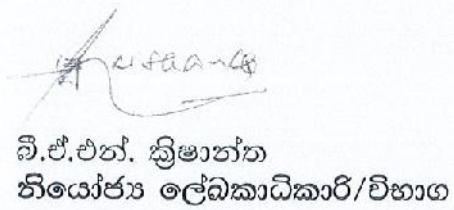 බී.ඒ.එන්. ක්‍රිෂාන්ත
නියෝජ්‍ය ලේඛකාධිකාරි/විභාග